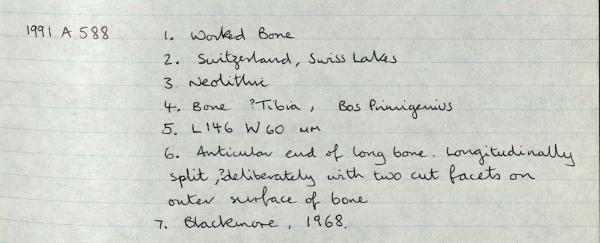 1991 A 588 1. Worked Bone
2. Switzerland, Swiss Lakes
3 Neolithic
4. Bone ?Tibia, Bos Primigenius
5. L146 W60 MM
6. Articular end of long bone. Longitudinally
split, ?deliberately with two cut facets on
outer surface of bone
7. Blackmore, 1968.